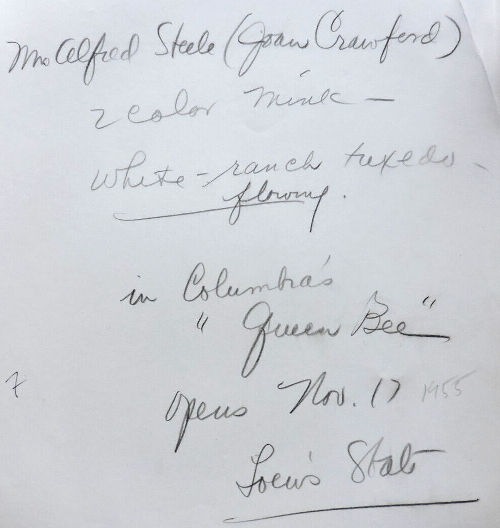 Mrs Alfred Steele (Joan Crawford)
2 color mink —
white - ranch tuxedo -
flowing.
in Columbia's
" Queen Bee"
7
opens Nov. 17 1955
Loew's State